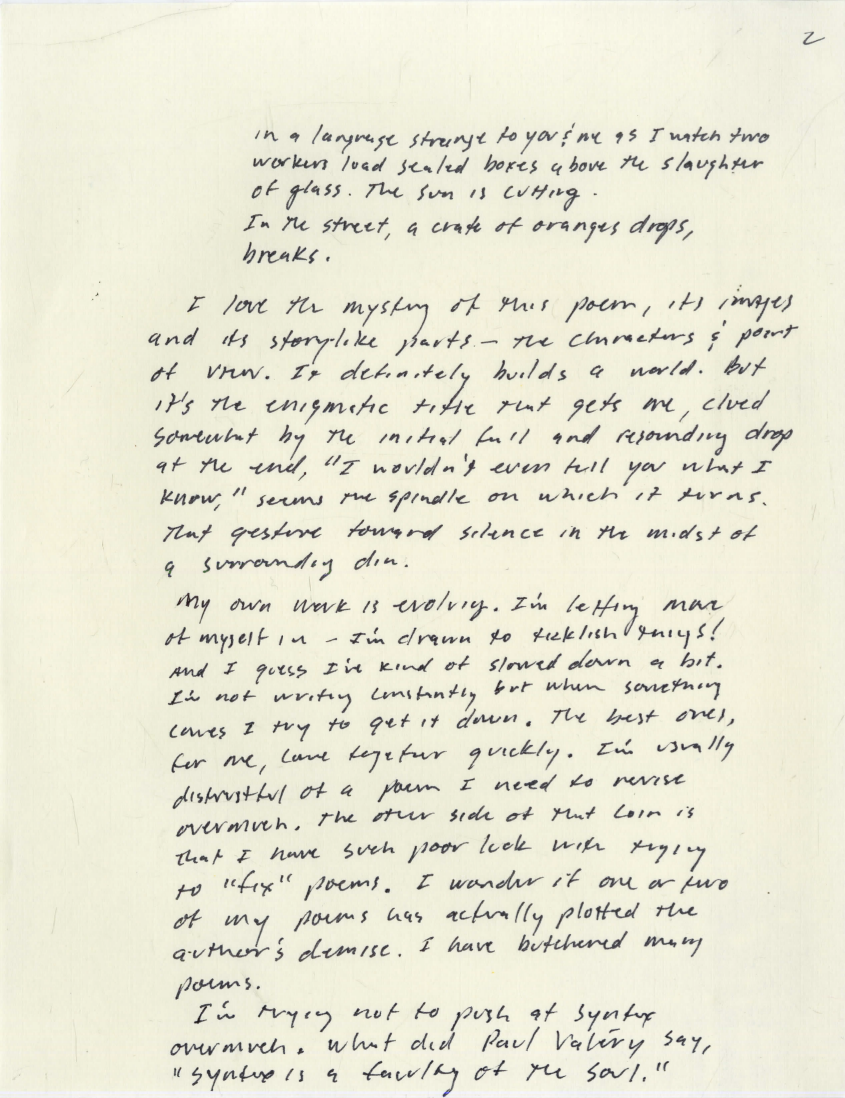 2
in a language strange to you & me as I watch two
workers load sealed boxes above the slaughter
of glass. The sun is cutting.
In the street, a crate of oranges drops,
breaks.
I love the mystery of this poem, its images
and its story-like parts – the characters & point
of view. It definitely builds a world. But
it's the enigmatic title that gets me, clued
somewhat by the initial fall and resounding drop
at the end, "I wouldn't even tell you what I
know," seems the spindle on which it turns.
That gesture toward silence in the midst of
a surrounding din.
My own work is evolving. I'm letting more
of myself in – I'm drawn to ticklish things!
And I guess I've kind of slowed down a bit.
I'm not writing constantly but when something
comes I try to get it down. The best ones,
for me, come together quickly. I'm usually
distrustful of a poem I need to revise
overmuch. The other side of that coin is
that I have such poor luck with trying
to "fix" poems. I wonder if one or two
of my poems has actually plotted the
author's demise. I have butchered many
poems.
I'm trying not to push at syntax
overmuch. What did Paul Valéry say,
"Syntax is a faculty of the soul."